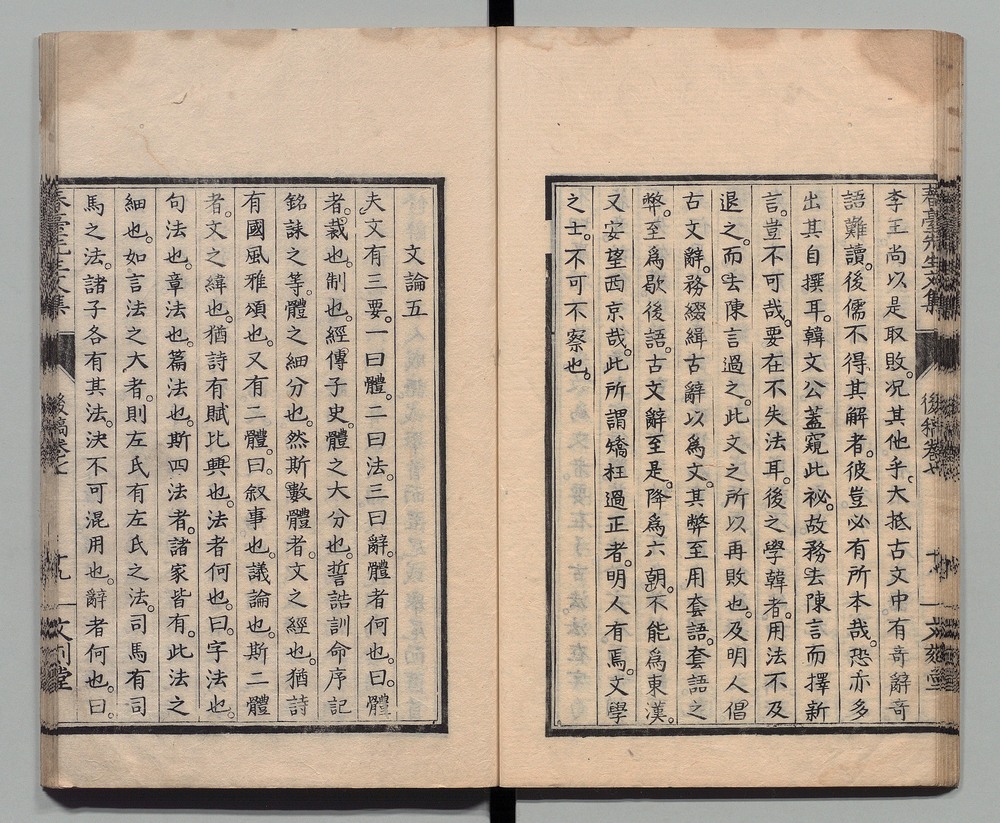 春臺先生文集 後稿卷七 十八 文刻堂
李王尚以是取敗。况其他乎。大抵古文中有奇辭奇
語難讀。後儒不得其解者。彼豈必有所本哉。恐亦多
出其自撰耳。韓文公蓋窺此祕。故務去陳言而擇新
言。豈不可哉。要在不失法耳。後之學韓者。用法不及
退之。而去陳言過之。此文之所以再敗也。及明人倡
古文辭。務綴緝古辭以為文。其弊至用套語。套語之
弊。至為歇後語。古文辭至是。降為六朝。不能為東漢。
又安望西京哉。此所謂矯枉過正者。明人有焉。文學
之士。不可不察也。
文論五
夫文有三要。一曰體。二曰法。三曰辭。體者何也。曰。體
者。裁也。制也。經傳子史。體之大分也。誓誥訓命序記
銘誄之等。體之細分也。然斯數體者。文之經也。猶詩
有國風雅頌也。又有二體。曰。叙事也。議論也。斯二體
者。文之緯也。猶詩有賦比興也。法者何也。曰。字法也。
句法也。章法也。篇法也。斯四法者。諸家皆有。此法之
細也。如言法之大者。則左氏有左氏之法。司馬有司
馬之法。諸子各有其法。決不可混用也。辭者何也。曰。
春臺先生文集 後稿卷七 十九 文刻堂